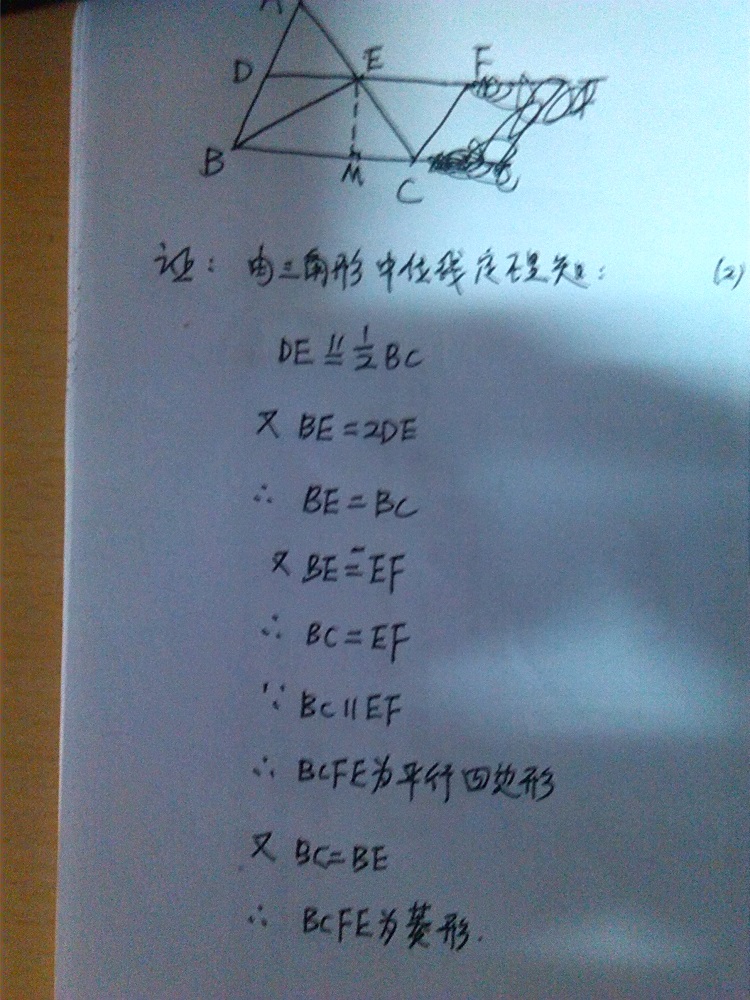 A
D E F
B M C
证: 由三角形中位线定理知: (2)
DE ∥= 1/2 BC
又 BE=2DE
∴ BE=BC
又 BE=EF
∴ BC=EF
∵ BC∥EF
∴ BCFE为平行四边形
又 BC=BE
∴ BCFE为菱形.